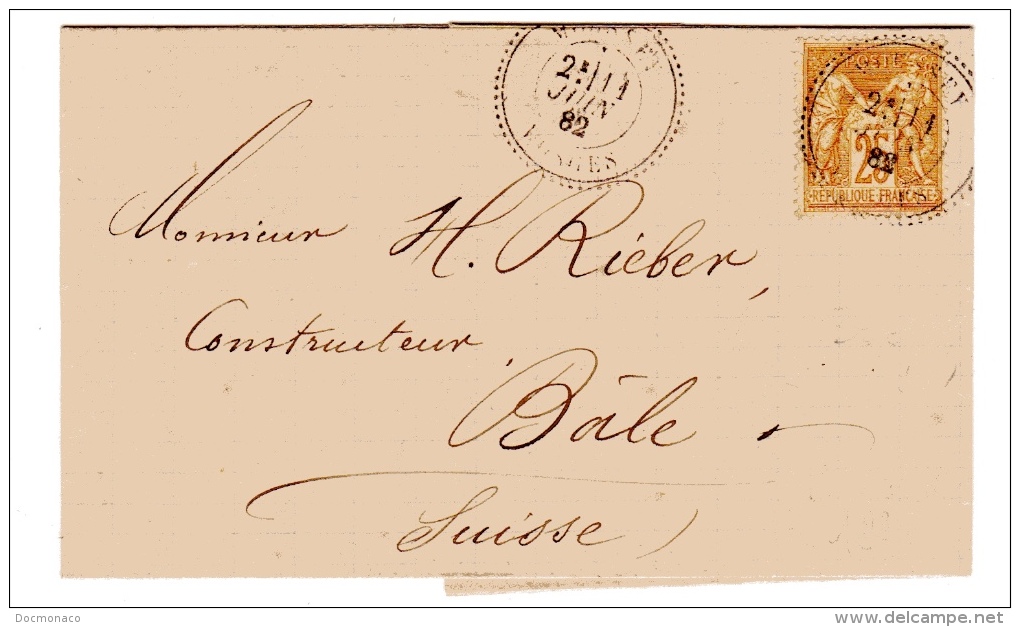 2E / 11
JUIN
82
VOSGES
POSTES
25
RÉPUBLIQUE FRANÇAISE
2E / 11
82
Monsieur H. Rieber,
Constructeur
Bâle
Suisse
Docmonaco
www.delcampe.net